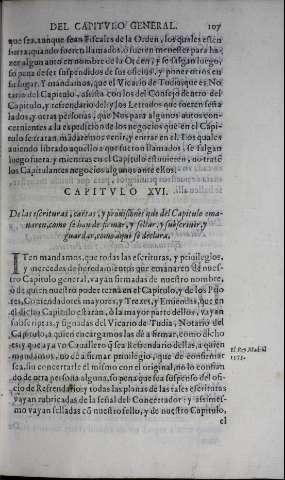 DEL CAPITVLO GENERAL. 107
que sea, aunque sean Fiscales de la Orden, los quales estén
fuera, quando fueren llamados, ò fuere menester para ha-
zer algun auto en nombre de la Orden, y se salgan luego,
so pena de ser suspendidos de sus oficios, y poner otros en
su lugar. Y mandamos, que el Vicario de Tudia, que es No-
tario del Capitulo, assista con los del Consejo dentro del
Capitulo, y refrendario del: y los Letrados que fueren seña
lados, y otras personas, que Nos para algunos autos con-
cernientes a la expedicion de los negocios que en el Capi-
tulo se tratan, mandaremos venir, y entrar en el. Los quales
auiendo librado aquello a que fueron llamados, se salgan
luego fuera: y mientras en el Capitulo estuuieren, no traté
los Capitulantes negocios algunos ante ellos.
CAPITVLO XVI.
De las escrituras, cartas, y prouisiones que del Capitulo ema-
naren, como se han de firmar, y sellar, y subscreuir, y
guardar, como aqui se declara.
ITen mandamos, que todas las escrituras, y priuilegios,
y mercedes de heredamientos que emanaren de nues-
tro Capitulo general, vayan firmadas de nuestro nombre,
ò de quien nuestro poder tenga en el Capitulo, y de los Prio
res, Comendadores mayores, y Trezes, y Emiendas, que en
el dicho Capitulo estarán, ò la mayor parte dellos, vayan
subscriptas, y signadas del Vicario de Tudia, Notario del
Capitulo, a quien encargamos las dè a firmar, como dicho
es: y que aya vo Cauallero q̃ sea Refrendario dellas, a quien
mandamos, no dè a firmar priuilegio, que de confirmar
sea, sin concertarle el mismo con el original, no lo confian
do de otra persona alguna, so pena que sea suspenso del ofi-
cio de Refrendario: y todas las planas de las tales escrituras
vayan rubricadas de la señal del Concertador: y assimes-
mo vayan selladas cõ nuestro sello, y de nuestro Capitulo,
el
El Rey Madrid
1573.